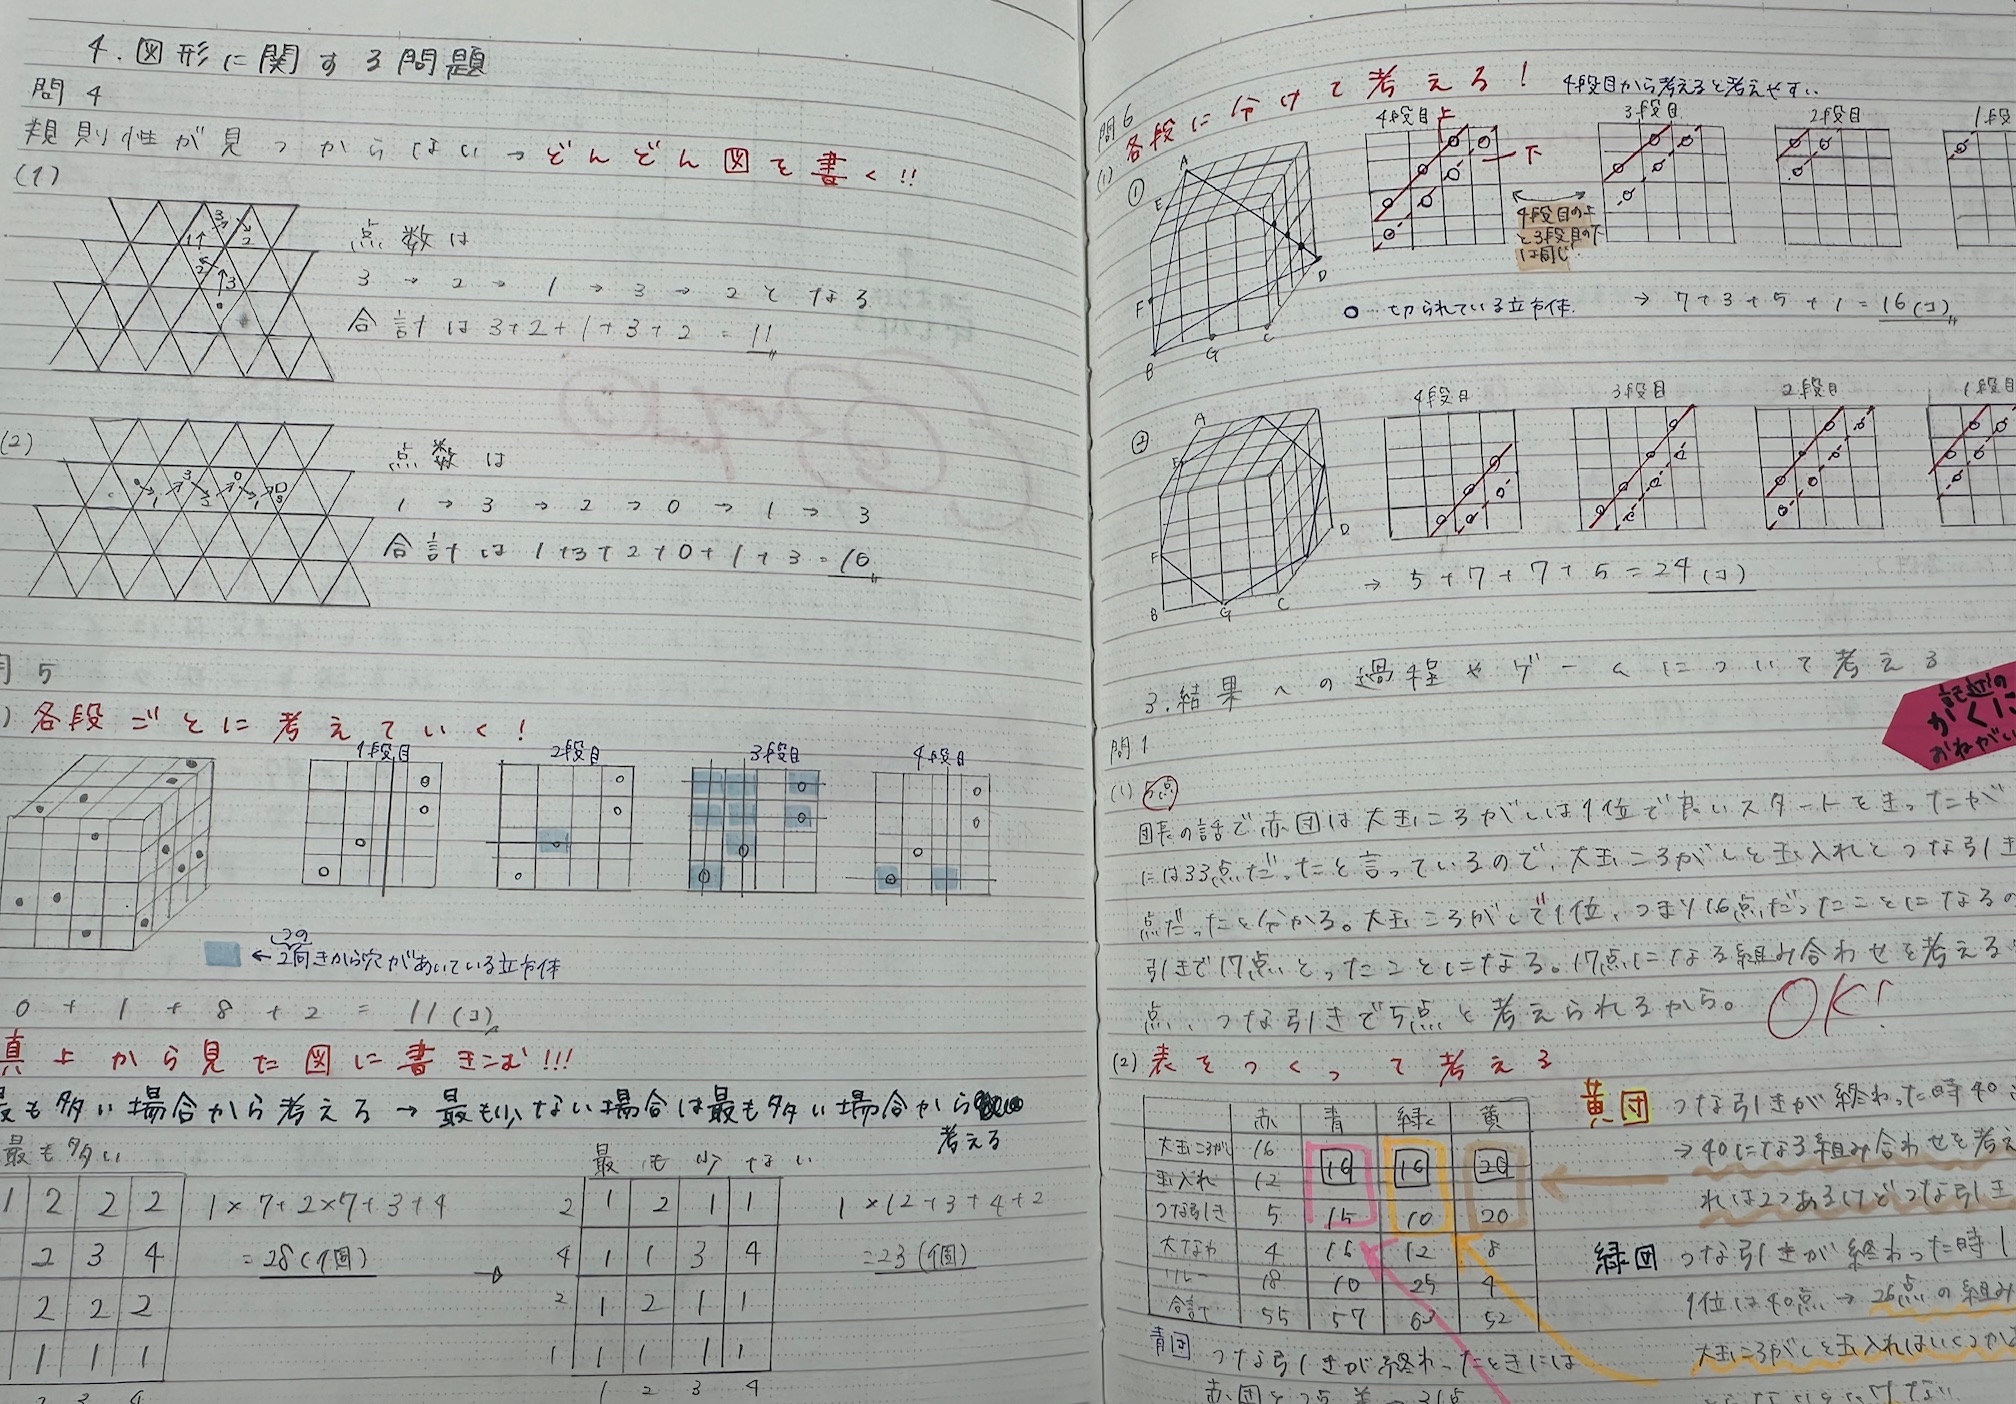 4.図形に関する問題
問4
規則性が見つからない→どんどん図を書く!!
(1)
3
1 2
2
3
点数は
3→2→1→3→2となる
合計は3+2+1+3+2=11
(2)
点数は
1→3→2→0→1→3
合計は1+3+2+0+1+3=10
問5
各段ごとに考えていく!
1段目 2段目 3段目 4段目
←2つの向きから穴があいている立方体
0+1+8+2=11(コ)
真上から見た図に書きこむ!!!
最も多い場合から考える→最も少ない場合は最も多い場合から
考える
最も多い
1 2 2 2
2 3 4
2 2 2
1 1 1
2 3 4
1×7+2×7+3+4
=28(個)
最も少ない
2 1 2 1 1
4 1 1 3 4
2 1 2 1 1
1 1 1 1 1
1 2 3 4
1×12+3+4+2
=23(個)
問6
各段に分けて考える!
4段目から考えると考えやすい
(1)
①
A
E
F
B
G
C
D
4段目 上
下
3段目
2段目
1段
4段目の上
と3段目の下
は同じ
○…切られている立方体.
→7+3+5+1=16(コ)
②
A
F
B
G
C
D
4段目 3段目 2段目 1段目
→5+7+7+5=24(コ)
3.結果への過程やゲームについて考える
問1
(1) 5点
団長の話で赤団は大玉ころがしは1位で良いスタートをきったが
には33点だったと言っているので、大玉ころがしと玉入れとつな引き
点だったと分かる。大玉ころがしで1位、つまり16点だったことになるの
引きで17点とったことになる。17点になる組み合わせを考える
点、つな引きで5点と考えられるから。
OK!
(2) 表をつくって考える
赤 青 緑 黄
大玉ころがし 16
玉入れ 12
16 16 20
つな引き 5 15 10 20
大なわ 4 16 12 8
リレー 18 10 25 4
合計 55 57 63 52
黄団 つな引きが終わった時40
→40になる組み合わせを考え
れは2つあるけどつな引き
緑団 つな引きが終わった時
1位は40点→26点の組み
大玉ころがしと玉入れはいくつか
青団 つな引きが終わったときには